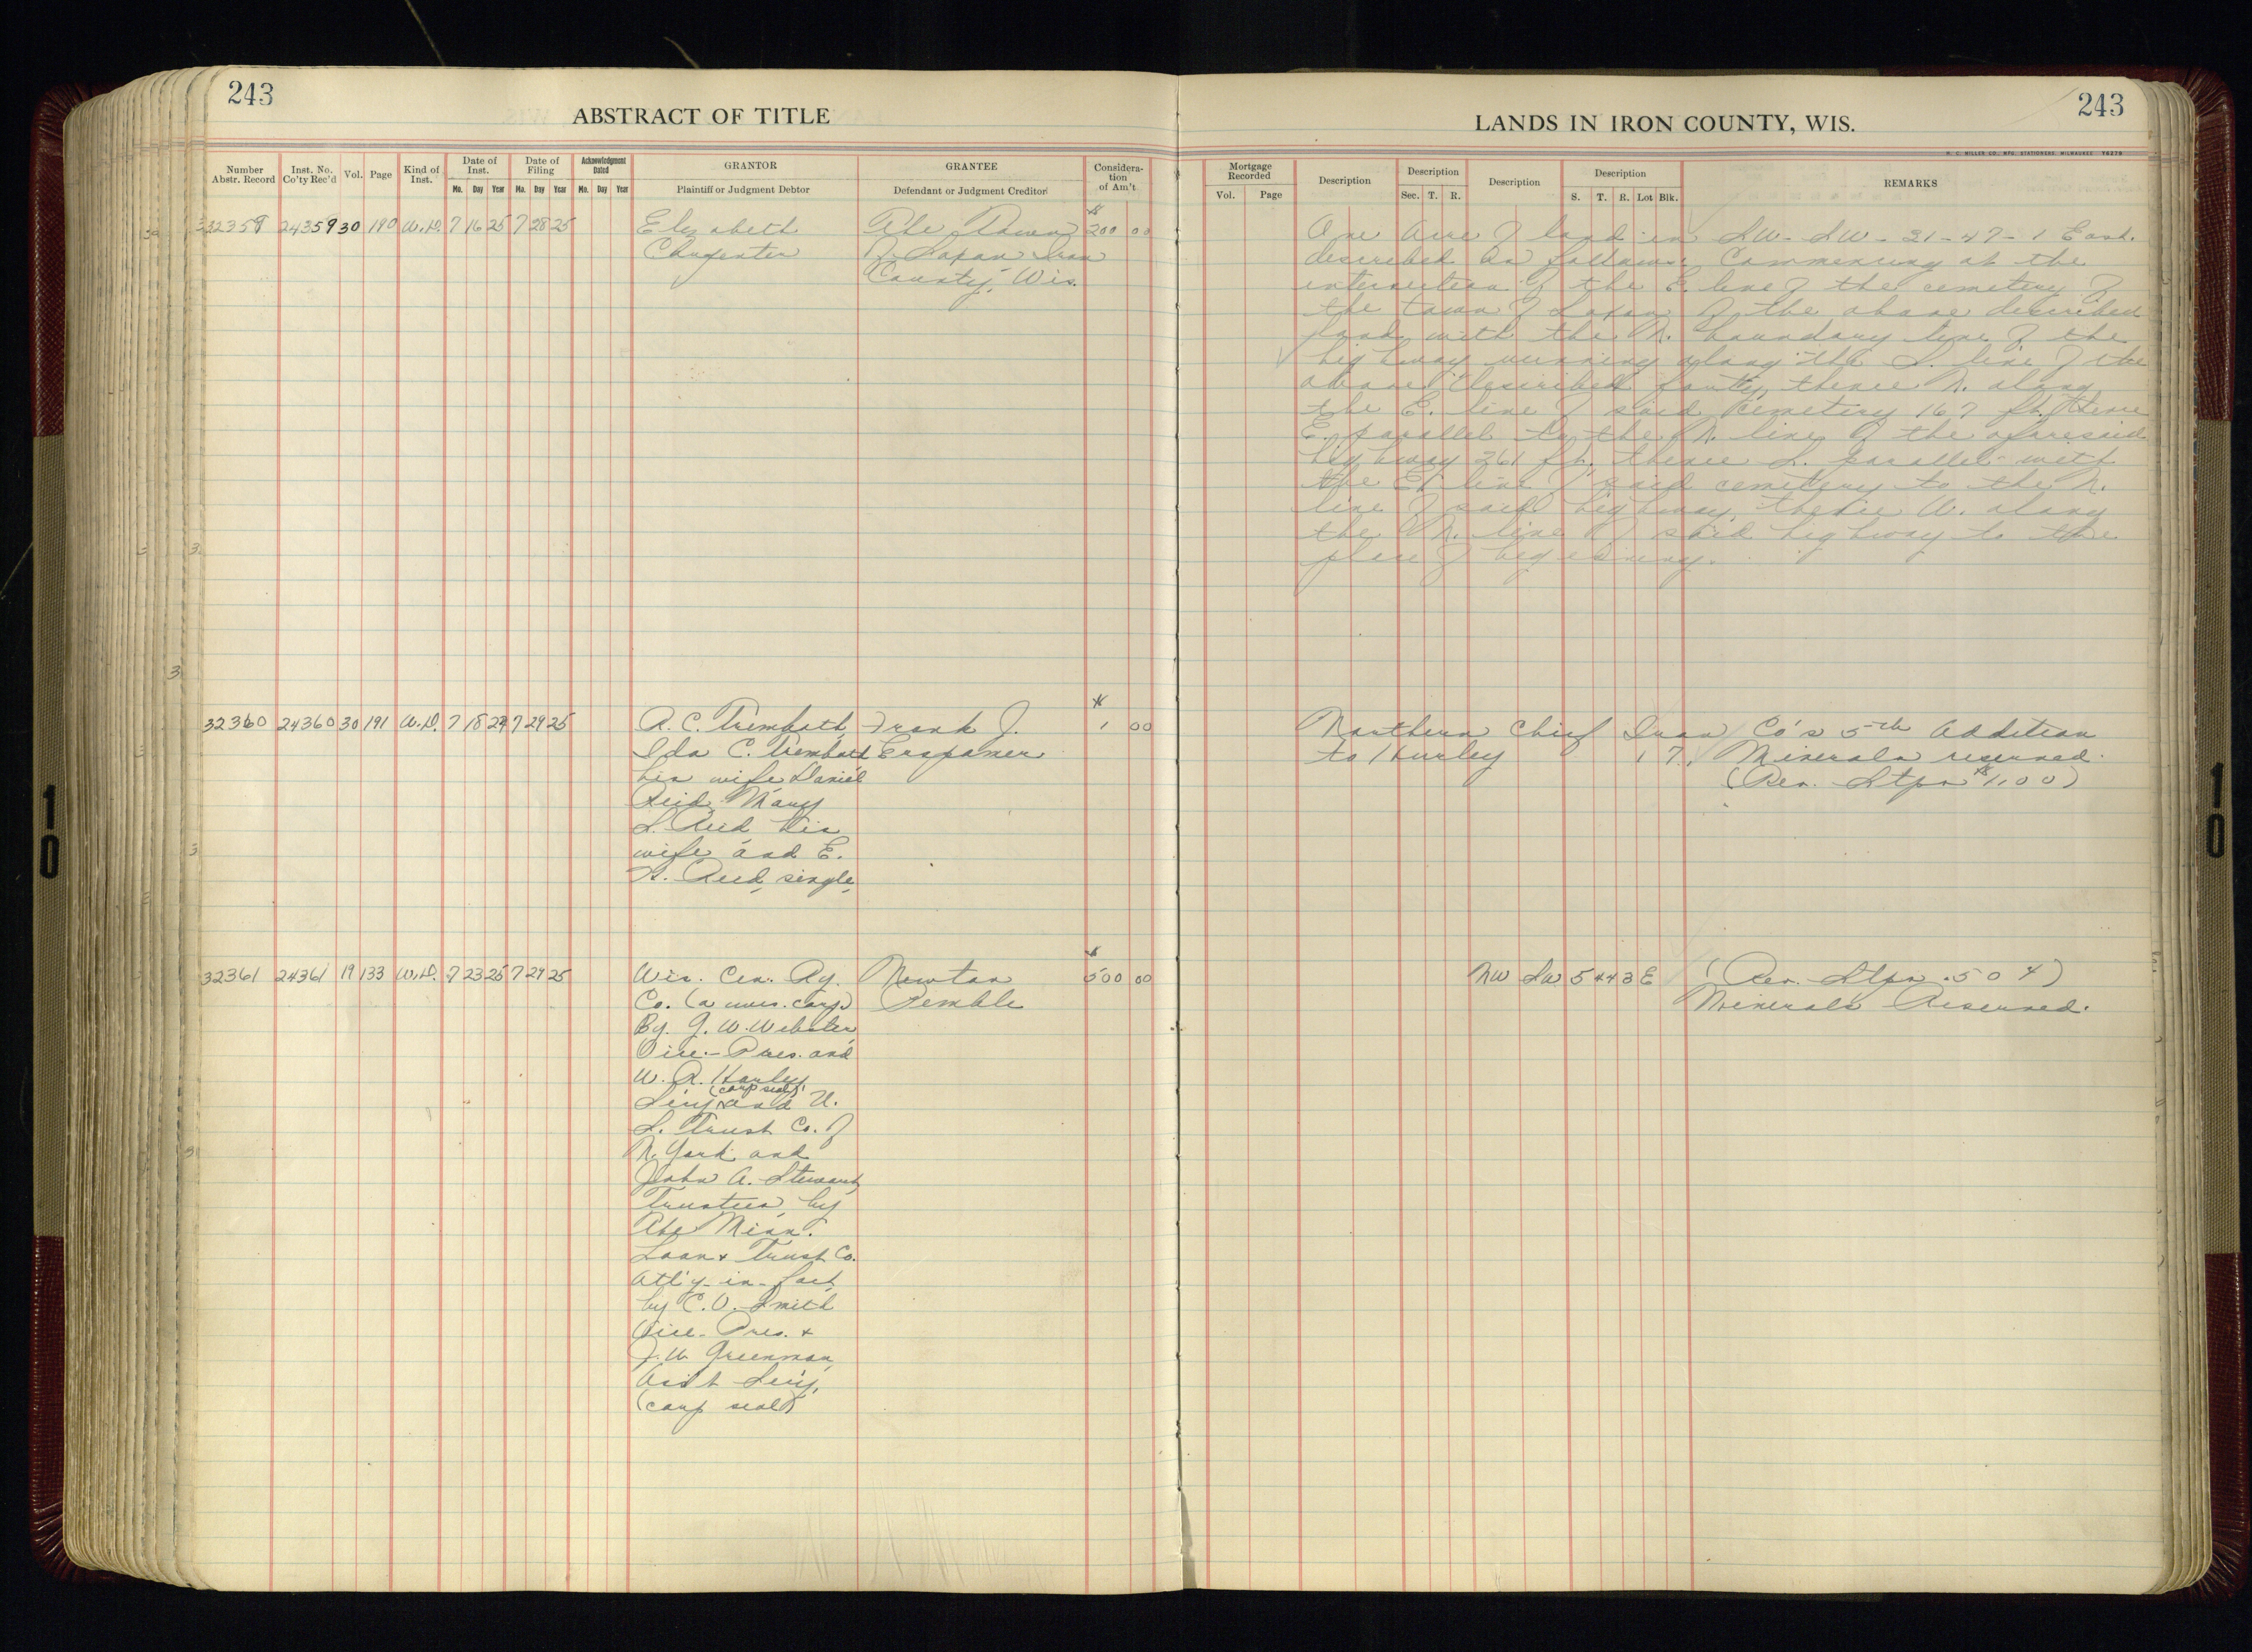 243
ABSTRACT OF TITLE
Number Abstr. Record
Inst. No. Co'ty Rec'd
Vol.
Page
Kind of Inst.
Date of Inst.
Mo. Day Year
Date of Filing
Mo. Day Year
Acknowledgment Dated
Mo. Day Year
GRANTOR
Plaintiff or Judgment Debtor
GRANTEE
Defendant or Judgment Creditor
Considera-
tion
of Am't
32359 24359 30 190 W.D. 7 16 25 7 28 25 Elizabeth The Town $200 00
Carpenter of Saxon Iron
County, Wis.
32360 24360 30 191 W.D. 7 18 24 7 29 25 A. C. Trembath, Frank J. $1 00
Ida C. Trembath Erspamer
his wife Daniel
Reid Mary
S. Reid his
wife and E.
H. Reid, single,
32361 24361 19 133 W.D. 7 23 25 7 29 25 Wis. Cen. Ry. Newton $500 00
Co. (a wis. corp) Pemble
By. G. W. Webster
Vice-Pres. and
W. R. Harley
(corp seal)
Sec'y and U.
S. Trust Co. of
N. York and
John A. Stewart,
Trustees, by
The Minn.
Loan & Trust Co.
Att'y-in-fact
by C. V. Smith
Vice-Pres. &
J. W. Greenman
Ass't Sec'y,
(corp seal)
243
LANDS IN IRON COUNTY, WIS.
H. C. MILLER CO., MFG. STATIONERS, MILWAUKEE 76278
Mortgage Recorded
Vol. Page
Description
Description
Sec. T. R.
Description
Description
S. T. R. Lot Blk.
REMARKS
One Acre of land in SW-SW-31-47-1 East.
described as follows: Commencing at the
intersection of the E. line of the cemetery of
the town of Saxon of the above described
land with the N. boundary line of the
highway running along the S. line of the
above described forty, thence N. along
the E. line of said cemetery 167 ft. thence
E. parallel to the N. line of the aforesaid
highway 261 ft., thence S. parallel with
the E. line of said cemetery to the N.
line of said highway, thence W. along
the N. line of said highway to the
place of beginning.
Northern Chief Iron Co's 5th Addition
to Hurley 1 7, Minerals reserved.
(Rev. Stps $1.00)
NW SW 5 44 3 E (Rev. Stps .50 ¢)
Minerals Reserved.
10
10